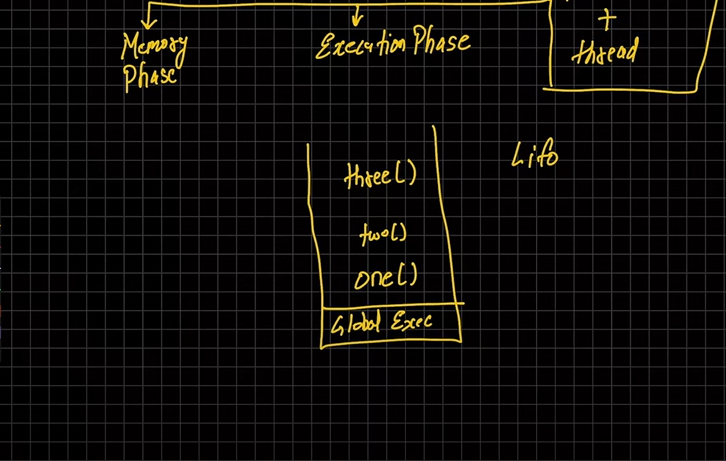 Memory
Phase
Execution Phase
+
thread
three()
Lifo
two()
one()
Global Exec